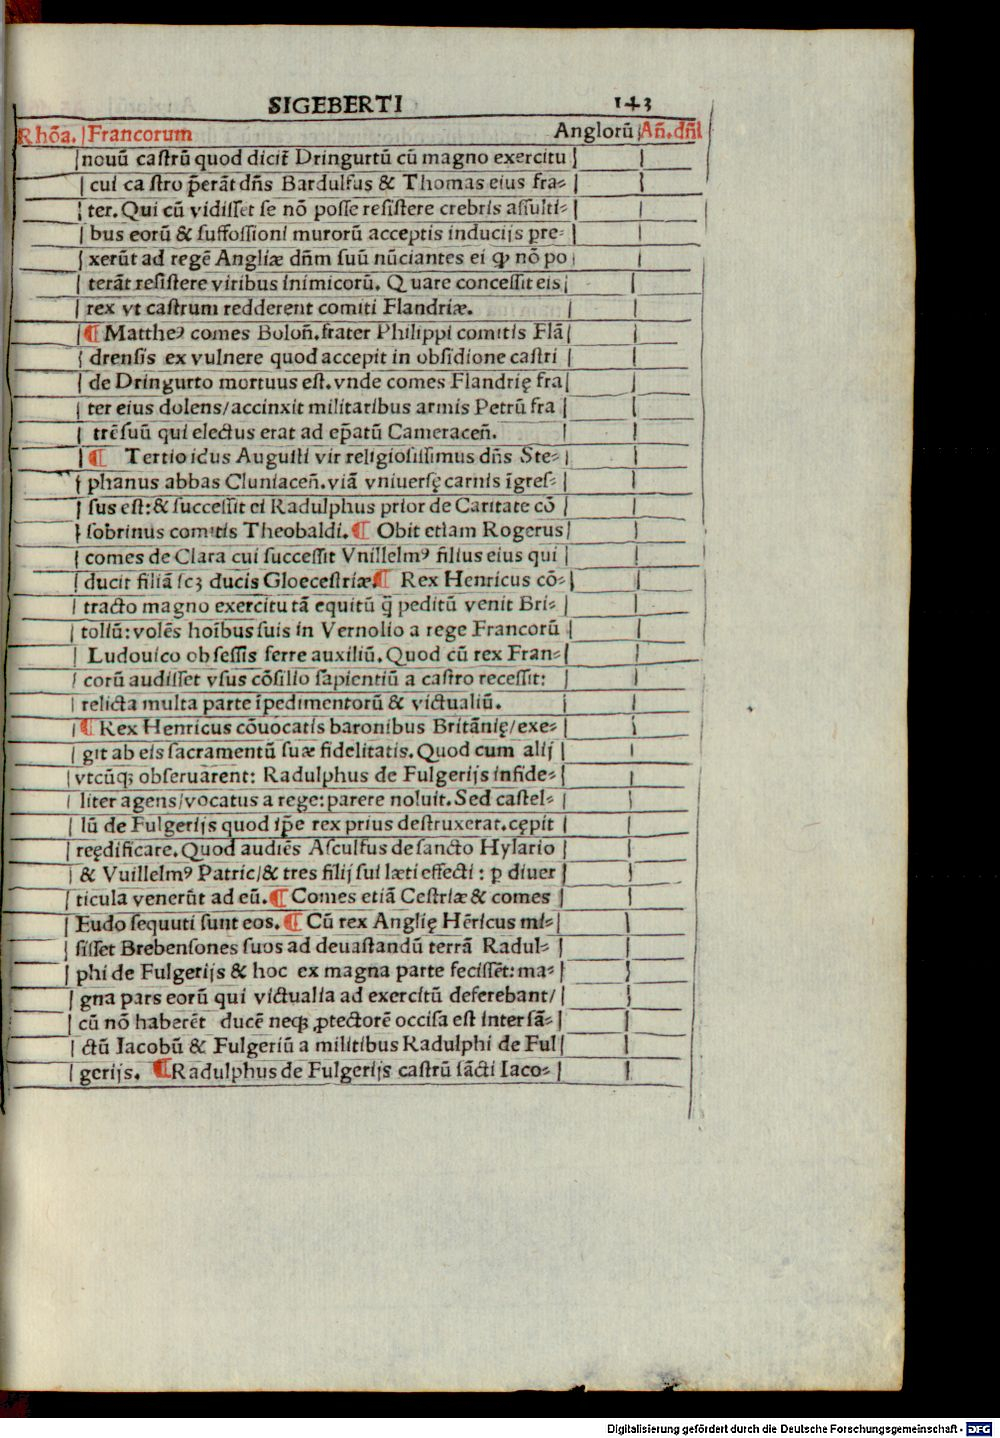 SIGEBERTI 143
Rhōa. Francorum Anglorū Añ.dñi
nouū castrū quod dicit̄ Dringurtū cū magno exercitu
cui ca stro p̄erāt dñs Bardulfus & Thomas eius fra⸗
ter. Qui cū vidisset se nō posse resistere crebris assulti⸗
bus eorū & suffossioni murorū acceptis inducijs pre⸗
xerūt ad regē Angliæ dñm suū nūciantes ei ꝙ nō po
terāt resistere viribus inimicorū. Quare concessit eis
rex vt castrum redderent comiti Flandriæ.
¶ Mattheꝰ comes Boloñ. frater Philippi comitis Flā
drensis ex vulnere quod accepit in obsidione castri
de Dringurto mortuus est. vnde comes Flandrię fra
ter eius dolens/accinxit militaribus armis Petrū fra
trē suū qui electus erat ad ep̄atū Cameraceñ.
¶ Tertio idus Augusti vir religiosissimus dñs Ste⸗
phanus abbas Cluniaceñ. viā vniuersę carnis īgres⸗
sus est: & successit ei Radulphus prior de Caritate cō
sobrinus comitis Theobaldi. ¶ Obit etiam Rogerus
comes de Clara cui successit Vuillelmꝰ filius eius qui
ducit filiā scꝫ ducis Gloecestriæ. ¶ Rex Henricus cō⸗
tracto magno exercitu tā equitū q̄ peditū venit Bri⸗
toliū: volēs hoībus suis in Vernolio a rege Francorū
Ludouico obsessis ferre auxiliū. Quod cū rex Fran⸗
corū audisset vsus cōsilio sapientiū a castro recessit:
relicta multa parte īpedimentorū & victualiū.
¶ Rex Henricus cōuocatis baronibus Britānię/exe⸗
git ab eis sacramentū suæ fidelitatis. Quod cum alij
vtcūqꝫ obseruarent: Radulphus de Fulgerijs infide⸗
liter agens/vocatus a rege: parere noluit. Sed castel⸗
lū de Fulgerijs quod ip̄e rex prius destruxerat. cępit
reędificare. Quod audiēs Asculfus de sancto Hylario
& Vuillelmꝰ Patric/& tres filij sui læti effecti : ꝑ diuer
ticula venerūt ad eū. ¶ Comes etiā Cestriæ & comes
Eudo sequuti sunt eos. ¶ Cū rex Anglię Hēricus mi⸗
sisset Brebensones suos ad deuastandū terrā Radul⸗
phi de Fulgerijs & hoc ex magna parte fecissēt: ma⸗
gna pars eorū qui victualia ad exercitū deferebant/
cū nō haberēt ducē neqꝫ ꝓtectorē occisa est inter sā⸗
ctū Iacobū & Fulgeriū a militibus Radulphi de Ful
gerijs. ¶ Radulphus de Fulgerijs castrū sācti Iaco⸗
Digitalisierung gefördert durch die Deutsche Forschungsgemeinschaft - DFG